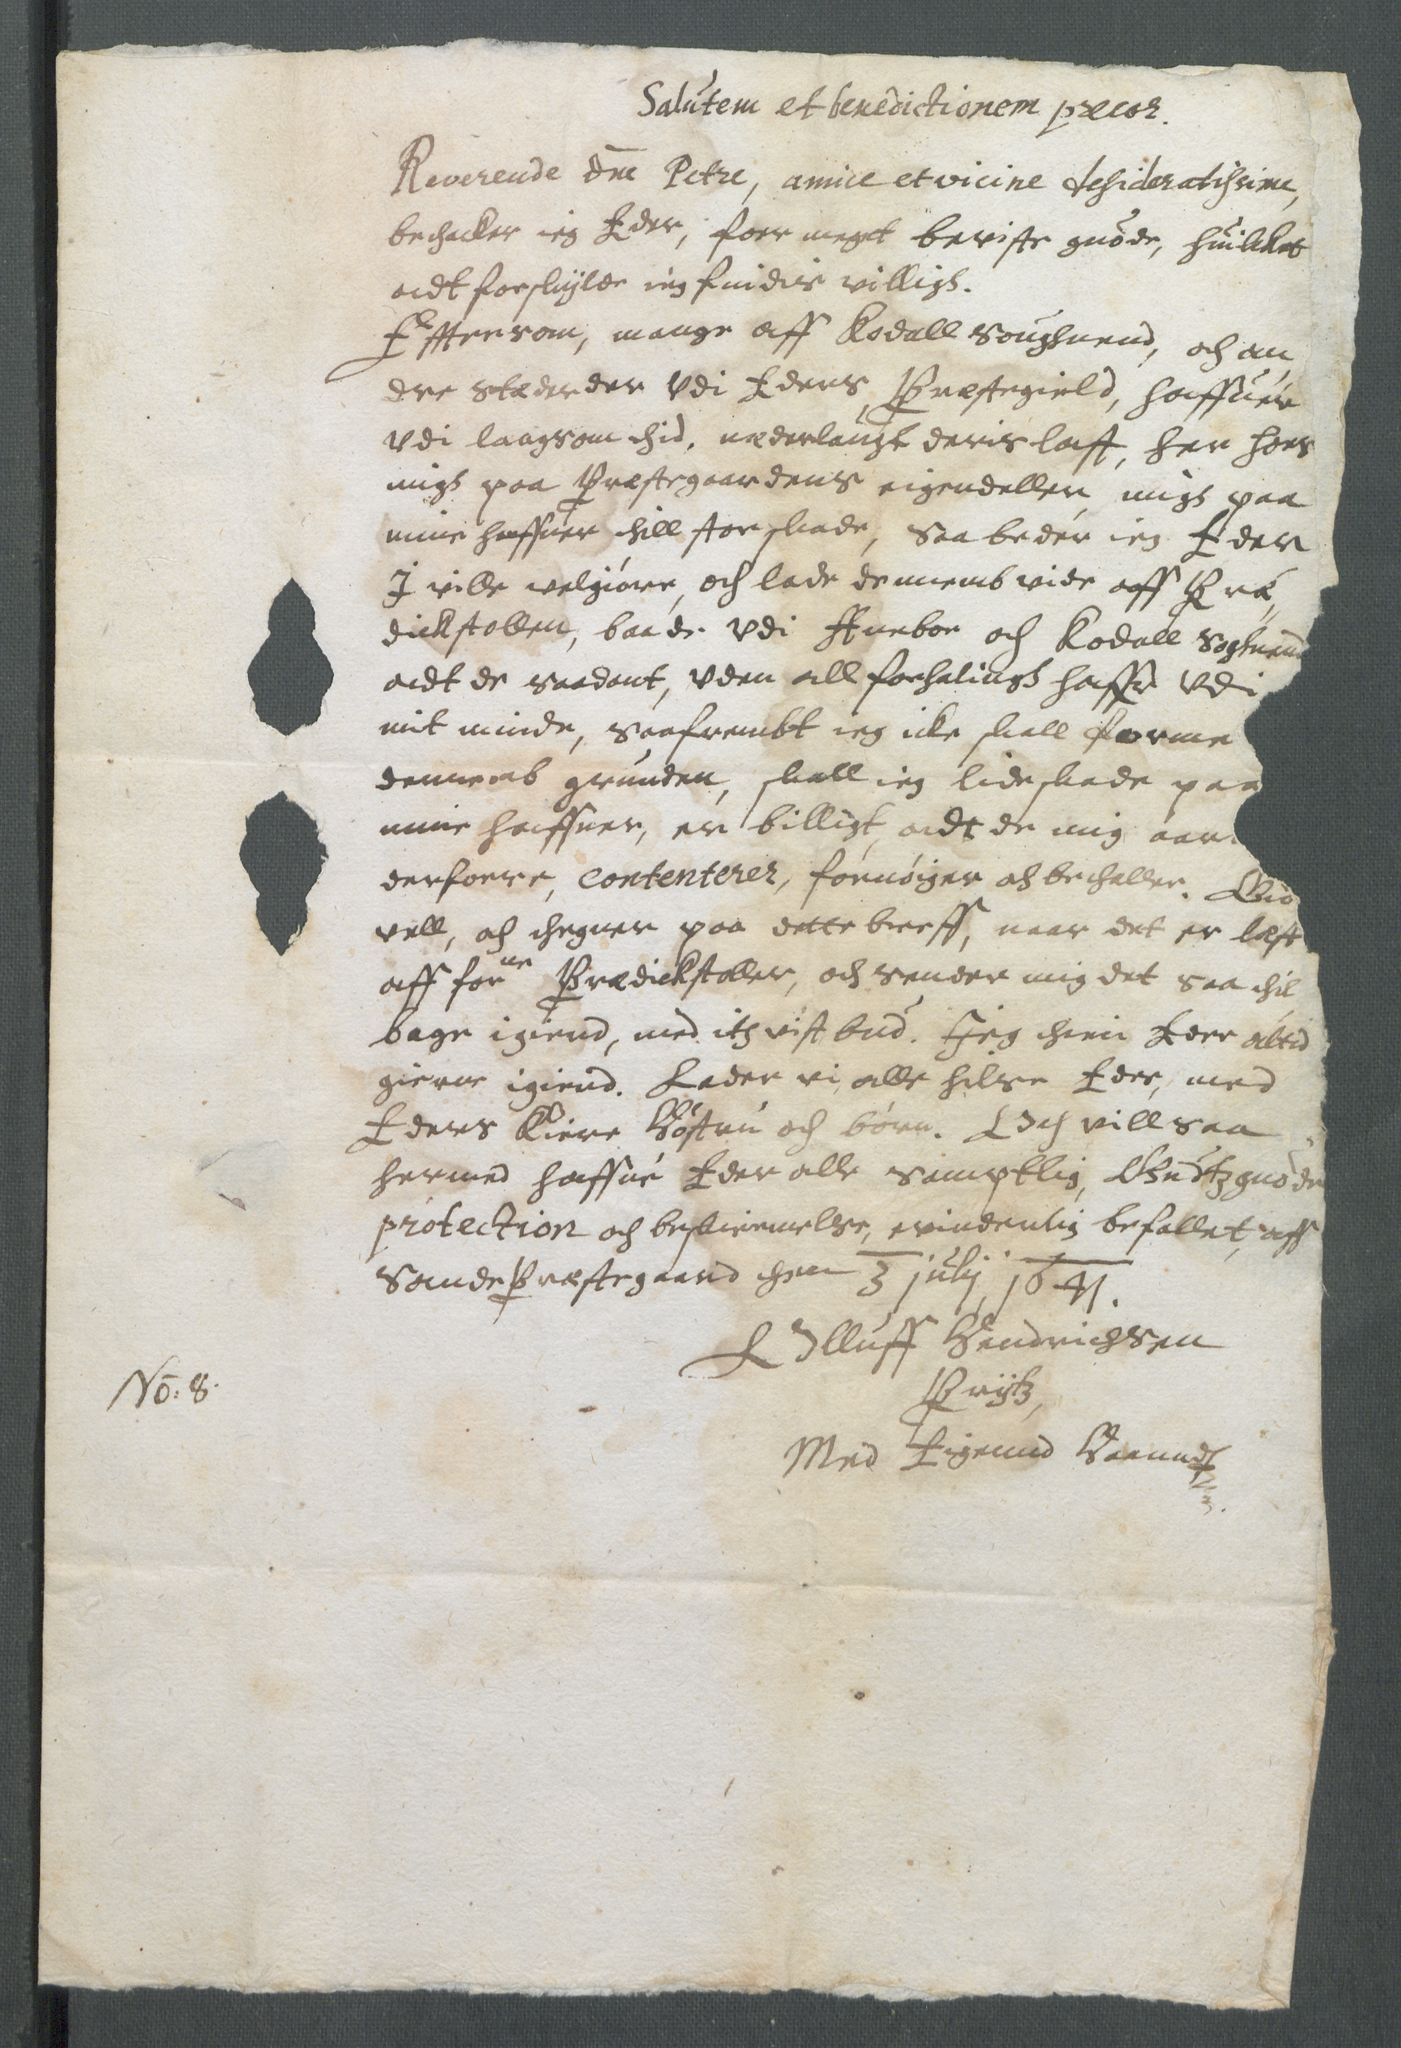 Salutem et benedictionem precor.
Reverende Dne Petre, amice et vicine desideratissime,
bethacker ieg Eder, foer meget beviste gode, huilket
adt forskylde ieg findis villigh.
Efftersom, mange aff Kodall soughnend, och an
dre stæder der Vdi Eders Præstegield, haffuer
vdi langsom thid, nederlaugt deris last, her hoes
migh paa Præstegaardens eigendeller, migh paa
mine haffner thill stor skade, saa beder ieg Eder
I ville velgiøre, och lade dennemb vide aff Præ,
dickstollen, baade vdi Aneboe och Kodall soghnend
adt de saadant, vden all forhalingh haffr vdi
mit minde, saafrembt ieg icke skall forme
dennemb grunden, skall ieg lide skade paa
mine haffner, er billigt, adt de mig
derfoere, contenterer, fornøiger och bethaller.
vell, och thegner paa dette breff, naar det er læst
aff forne Prædickstoller, och sender mig det saa thil
bage igiend, med ith vist bud. Jeg thien Eder altid
gierne igiend. Lader vi alle hilse Eder, med
Eders Kiere Høstru och børn. Och vill saa
hermed haffue Eder alle samptlig, Gudtz gode
protection och beskiermelse, evindenlig befallet, aff
Sande Præstegaard then 3 julij 1641.
Olluff Hendrichsen
Prijtz,
Med Eigennd Haannd
No: 8.